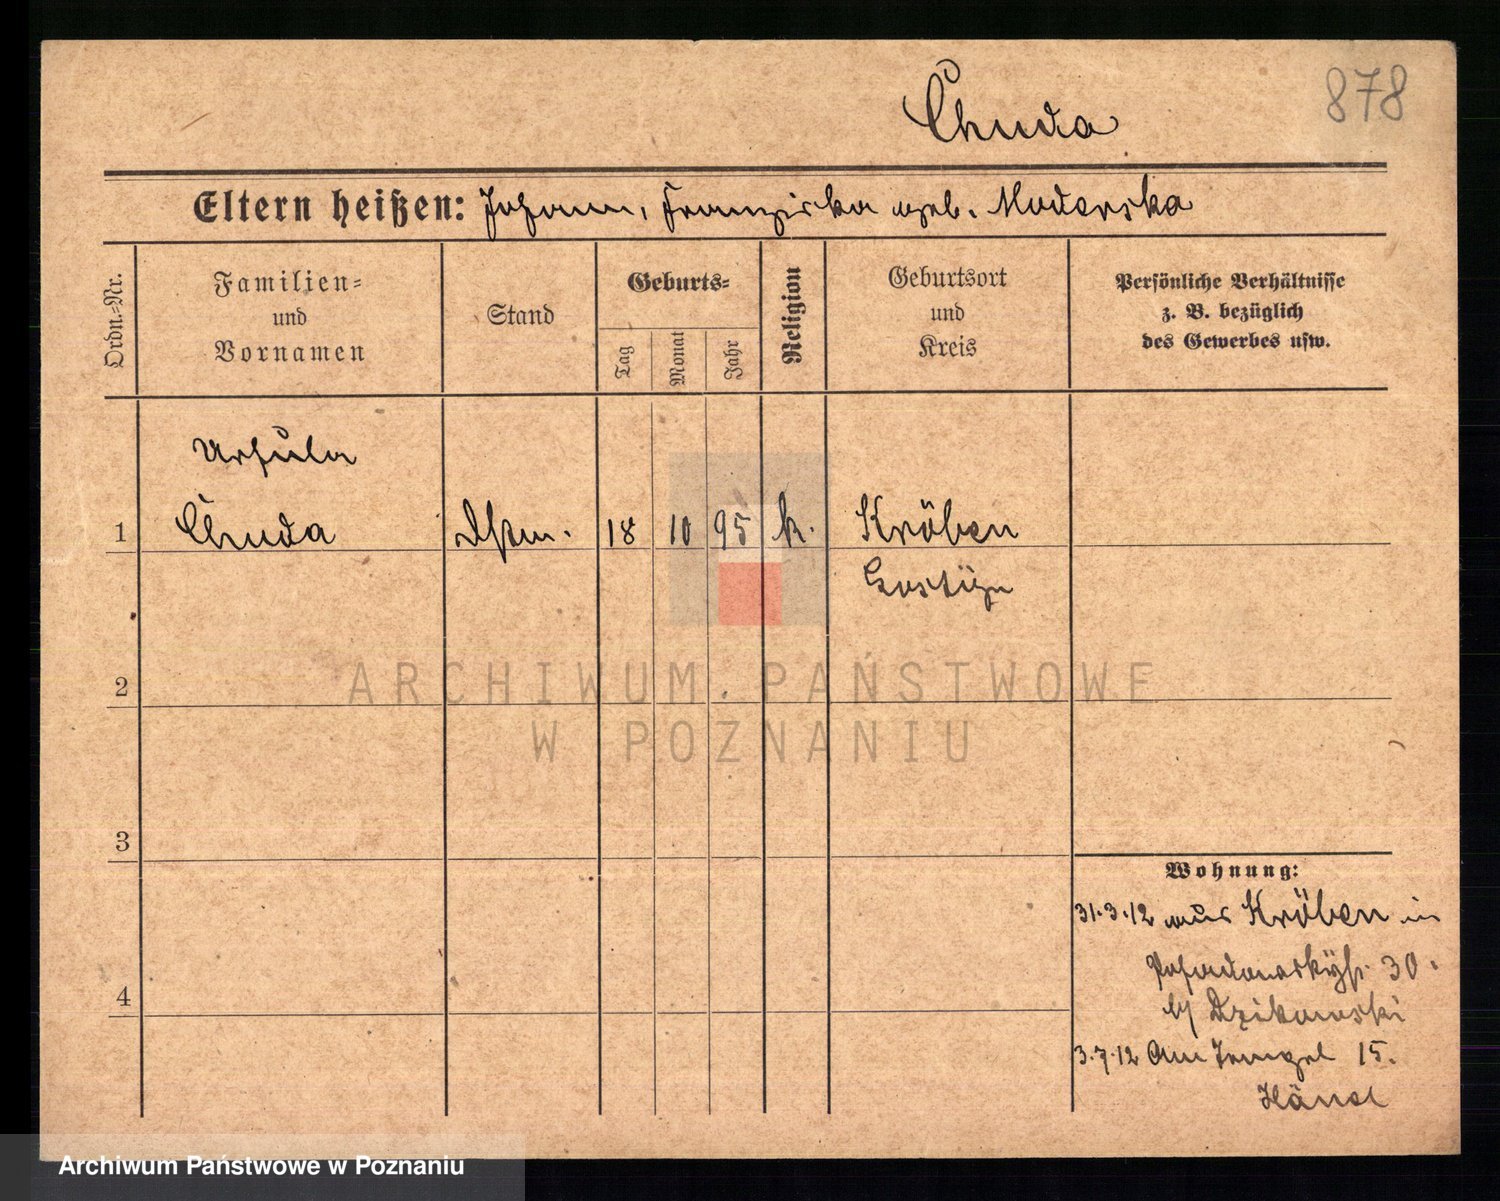 878
Chuda
Eltern heißen: Johann, Franziska geb. Moderska
Ordn.-Nr.
Familien-
und
Vornamen
Stand
Geburts-
Tag
Monat
Jahr
Religion
Geburtsort
und
Kreis
Persönliche Verhältnisse
z. B. bezüglich
des Gewerbes usw.
Ursula
1 Chuda Dstm. 18 10 95 k. Kröben
Gostÿn
2
3
4
Wohnung:
31.3.12 aus Kröben in
30.
b/ Dzikowski
3.7.12 Am 15.
ARCHIWUM PAŃSTWOWE
W POZNANIU
Archiwum Państwowe w Poznaniu